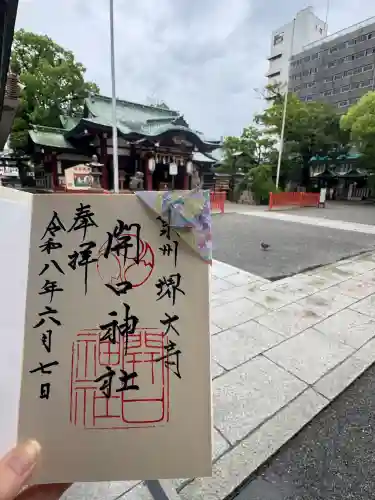 泉州堺大寺
奉拝
開口神社
開口神社
令和八年六月七日